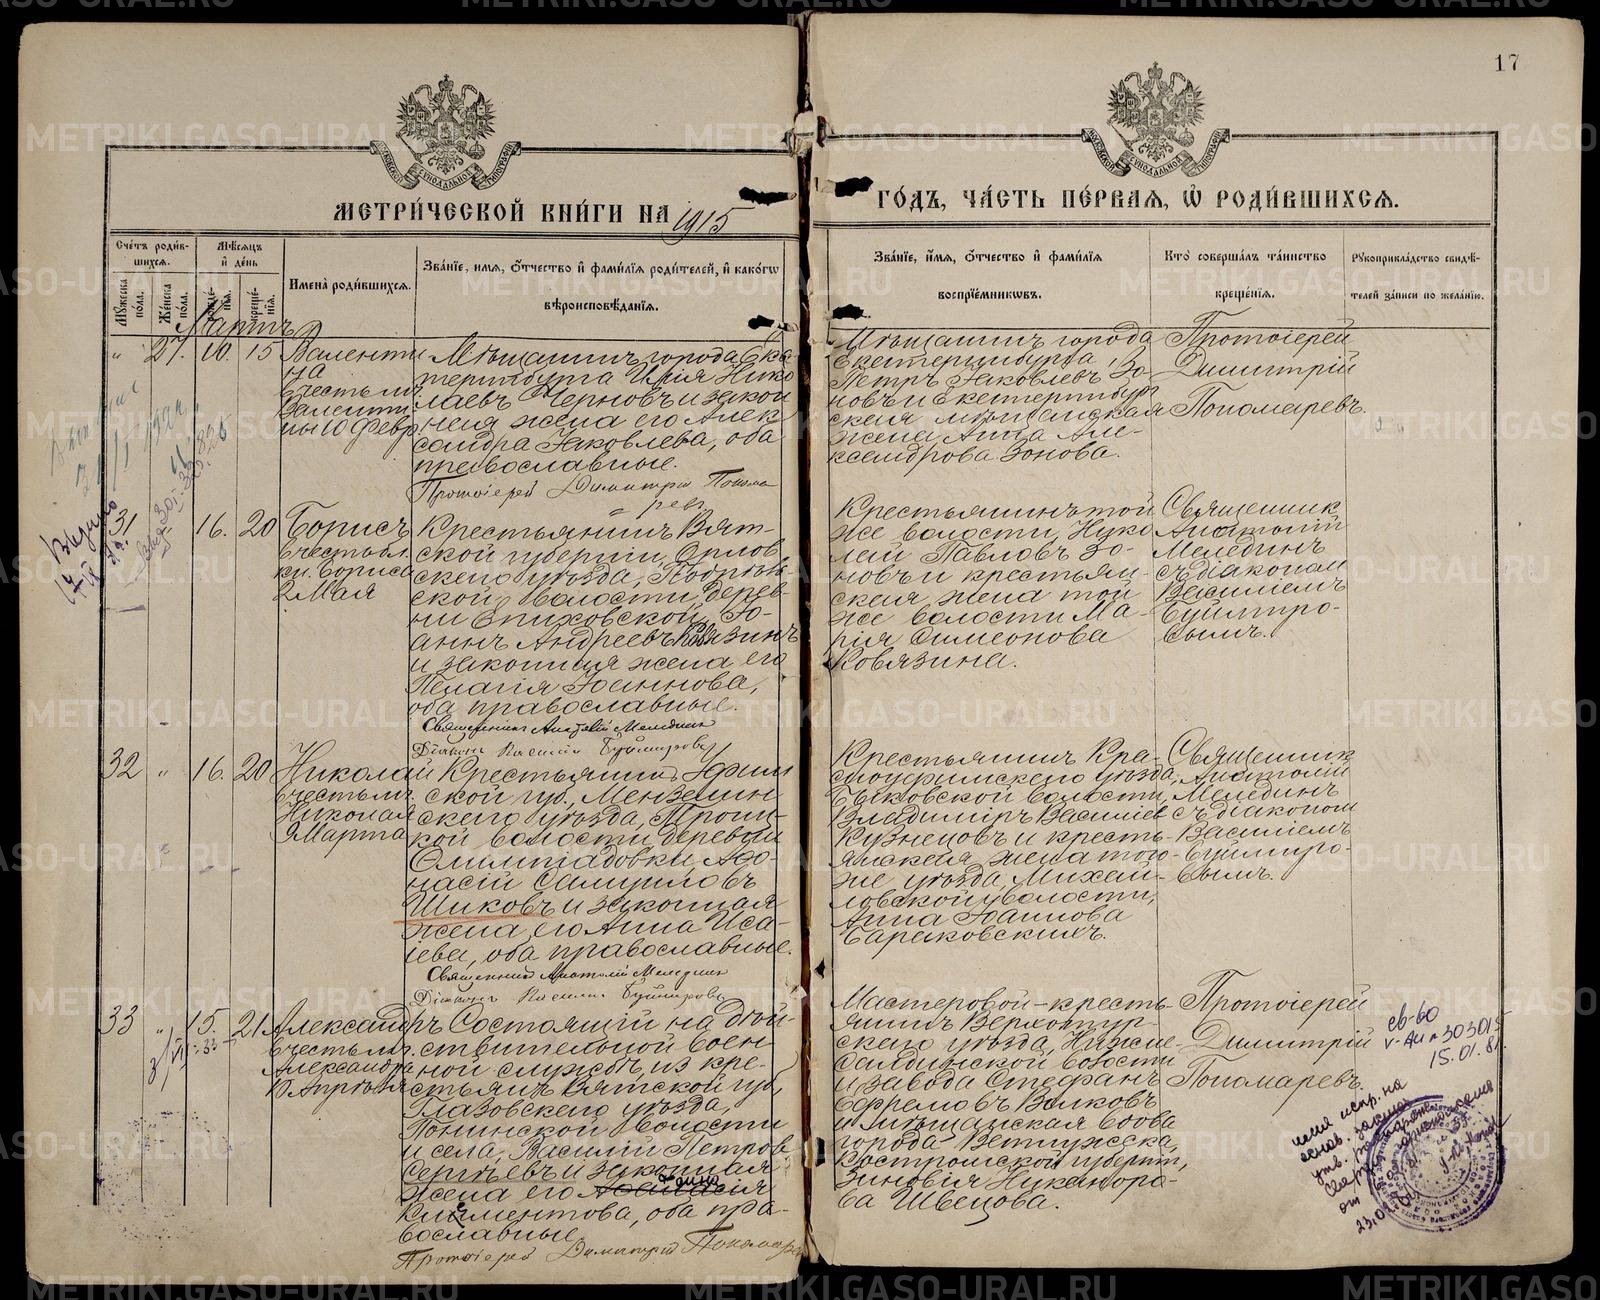 17
МЕТРИ́ЧЕСКОЙ КНИ́ГИ НА 1915
ГО́ДЪ, ЧА́СТЬ ПЕ́РВАЯ, Ѿ РОДИ́ВШИХСЯ.
Сче́тъ роди́в-
шихся.
Мꙋжеска пола.
Же́нска по́ла.
Мѣ́сяцъ
и҆ де́нь
рожде́-
нїя.
креще́-
нїя.
И҆мена̀ роди́вшихся.
Зва́нїе, и҆мя, ѻ҆́тчество и҆ фами́лїя роди́телей, и҆ како́гѡ
вѣроисповѣ́данїя.
Зва́нїе, и҆́мя, ѻ҆́тчество и҆ фами́лїя
воспрїе́мникѡвъ.
Кто̀ соверша́лъ та́инство
креще́нїя.
Рꙋкоприкла́дство свидѣ́-
телей за́писи по жела́нїю.
Мартъ
" 27. 10. 15
Валенти
на
въ честь мч.
Валенти
ны 10 февр.
Мѣщанинъ города Ека-
теринбурга Илія Нико
лаевъ Черновъ и закон
ная жена его Алек
сандра Іаковлева, оба
православные.
Протоіерей Димитрій Понома
ревъ
Мѣщанинъ города
Екатеринбурга
Петръ Іаковлевъ Зо-
новъ и Екатеринбург
ская мѣщанская
жена Анна Але-
ксандрова Зонова.
Протоіерей
Димитрій
Пономаревъ.
31 16. 20
Борисъ
въ честь бл.
кн. Бориса
2 Мая
Крестьянинъ Вят-
ской губерніи, Орлов
скаго уѣзда,
ской волости, дерев-
ни Епиховской, Іо-
аннъ Андреевъ Ковязинъ
и законная жена его
Пелагія Іоаннова,
оба православные.
Священникъ Анатолій Мелединъ
Діаконъ Василій
Крестьянинъ той
же волости, Нико
лай Павловъ Зо-
новъ и крестьян-
ская жена той
же волости Ма-
рія Симеонова
Ковязина.
Священник
Анатолій
Мелединъ
съ діаконом
Василіемъ
Буймиро-
вымъ.
32 " 16. 20
Николай
въ честь мч.
Николая
9 Марта
Крестьянинъ Уфим
ской губ., Мензелин
скаго уѣзда, Троиц-
кой волости деревни
Олимпіадовки, Афо-
насій Самуиловъ
Шиковъ и законная
жена его Анна Иса-
іева, оба православные.
Священникъ Анатолій Мелединъ
Діаконъ Василій
Крестьянинъ Кра-
сноуфимскаго уѣзда,
Быковской волости,
Владиміръ Василіев
Кузнецовъ и кресть-
янская жена того-
же уѣзда, Михай-
ловской волости,
Анна Іоаннова
Барановскихъ.
Священник
Анатолій
Мелединъ
съ діаконом
Василіемъ
Буймиро-
вымъ.
33 " 15. 21
Александръ
въ честь мч.
Александра
Апрѣля
Состоящій на дѣй-
ствительной воен-
ной службѣ, из кре-
стьянъ Вятской губ.,
Глазовскаго уѣзда,
Понинской волости
и села, Василій Петров
Сергѣевъ и законная
жена его
Климентова, оба пра-
вославные.
Протоіерей Димитрій Пономаре
Мастеровой-кресть-
янинъ Верхотур-
скаго уѣзда, Нижне-
Салдинской волости
и завода Стефанъ
Ефремовъ Волковъ
и мѣщанская вдова
города Ветлужска
Костромской губерніи,
Зиновія Никандоро-
ва Швецова.
Протоіерей
Димитрій
Пономаревъ.
св-во
V-АИ № 303015
15.01.81.